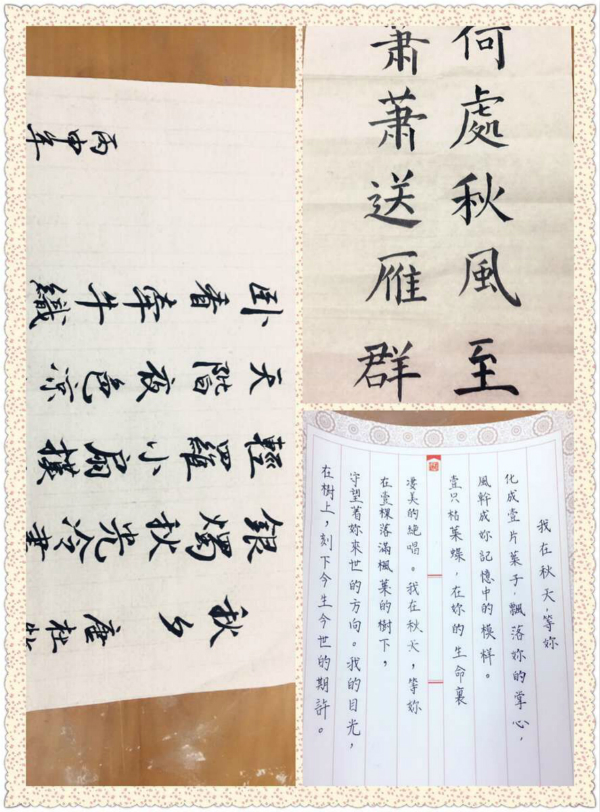 秋夕 唐杜牧
銀燭秋光冷畫
輕羅小扇撲
天階夜色涼
卧看牽牛織
丙申年
何處秋風至
蕭蕭送雁群
我在秋天,等妳
化成壹片葉子,飄落妳的掌心,
風幹成妳記憶中的模样。
壹只枯葉蝶,在妳的生命裏
凄美的絕唱。我在秋天,等妳
在壹棵落滿楓葉的樹下,
守望著妳來世的方向。我的目光,
在樹上,刻下今生今世的期許。